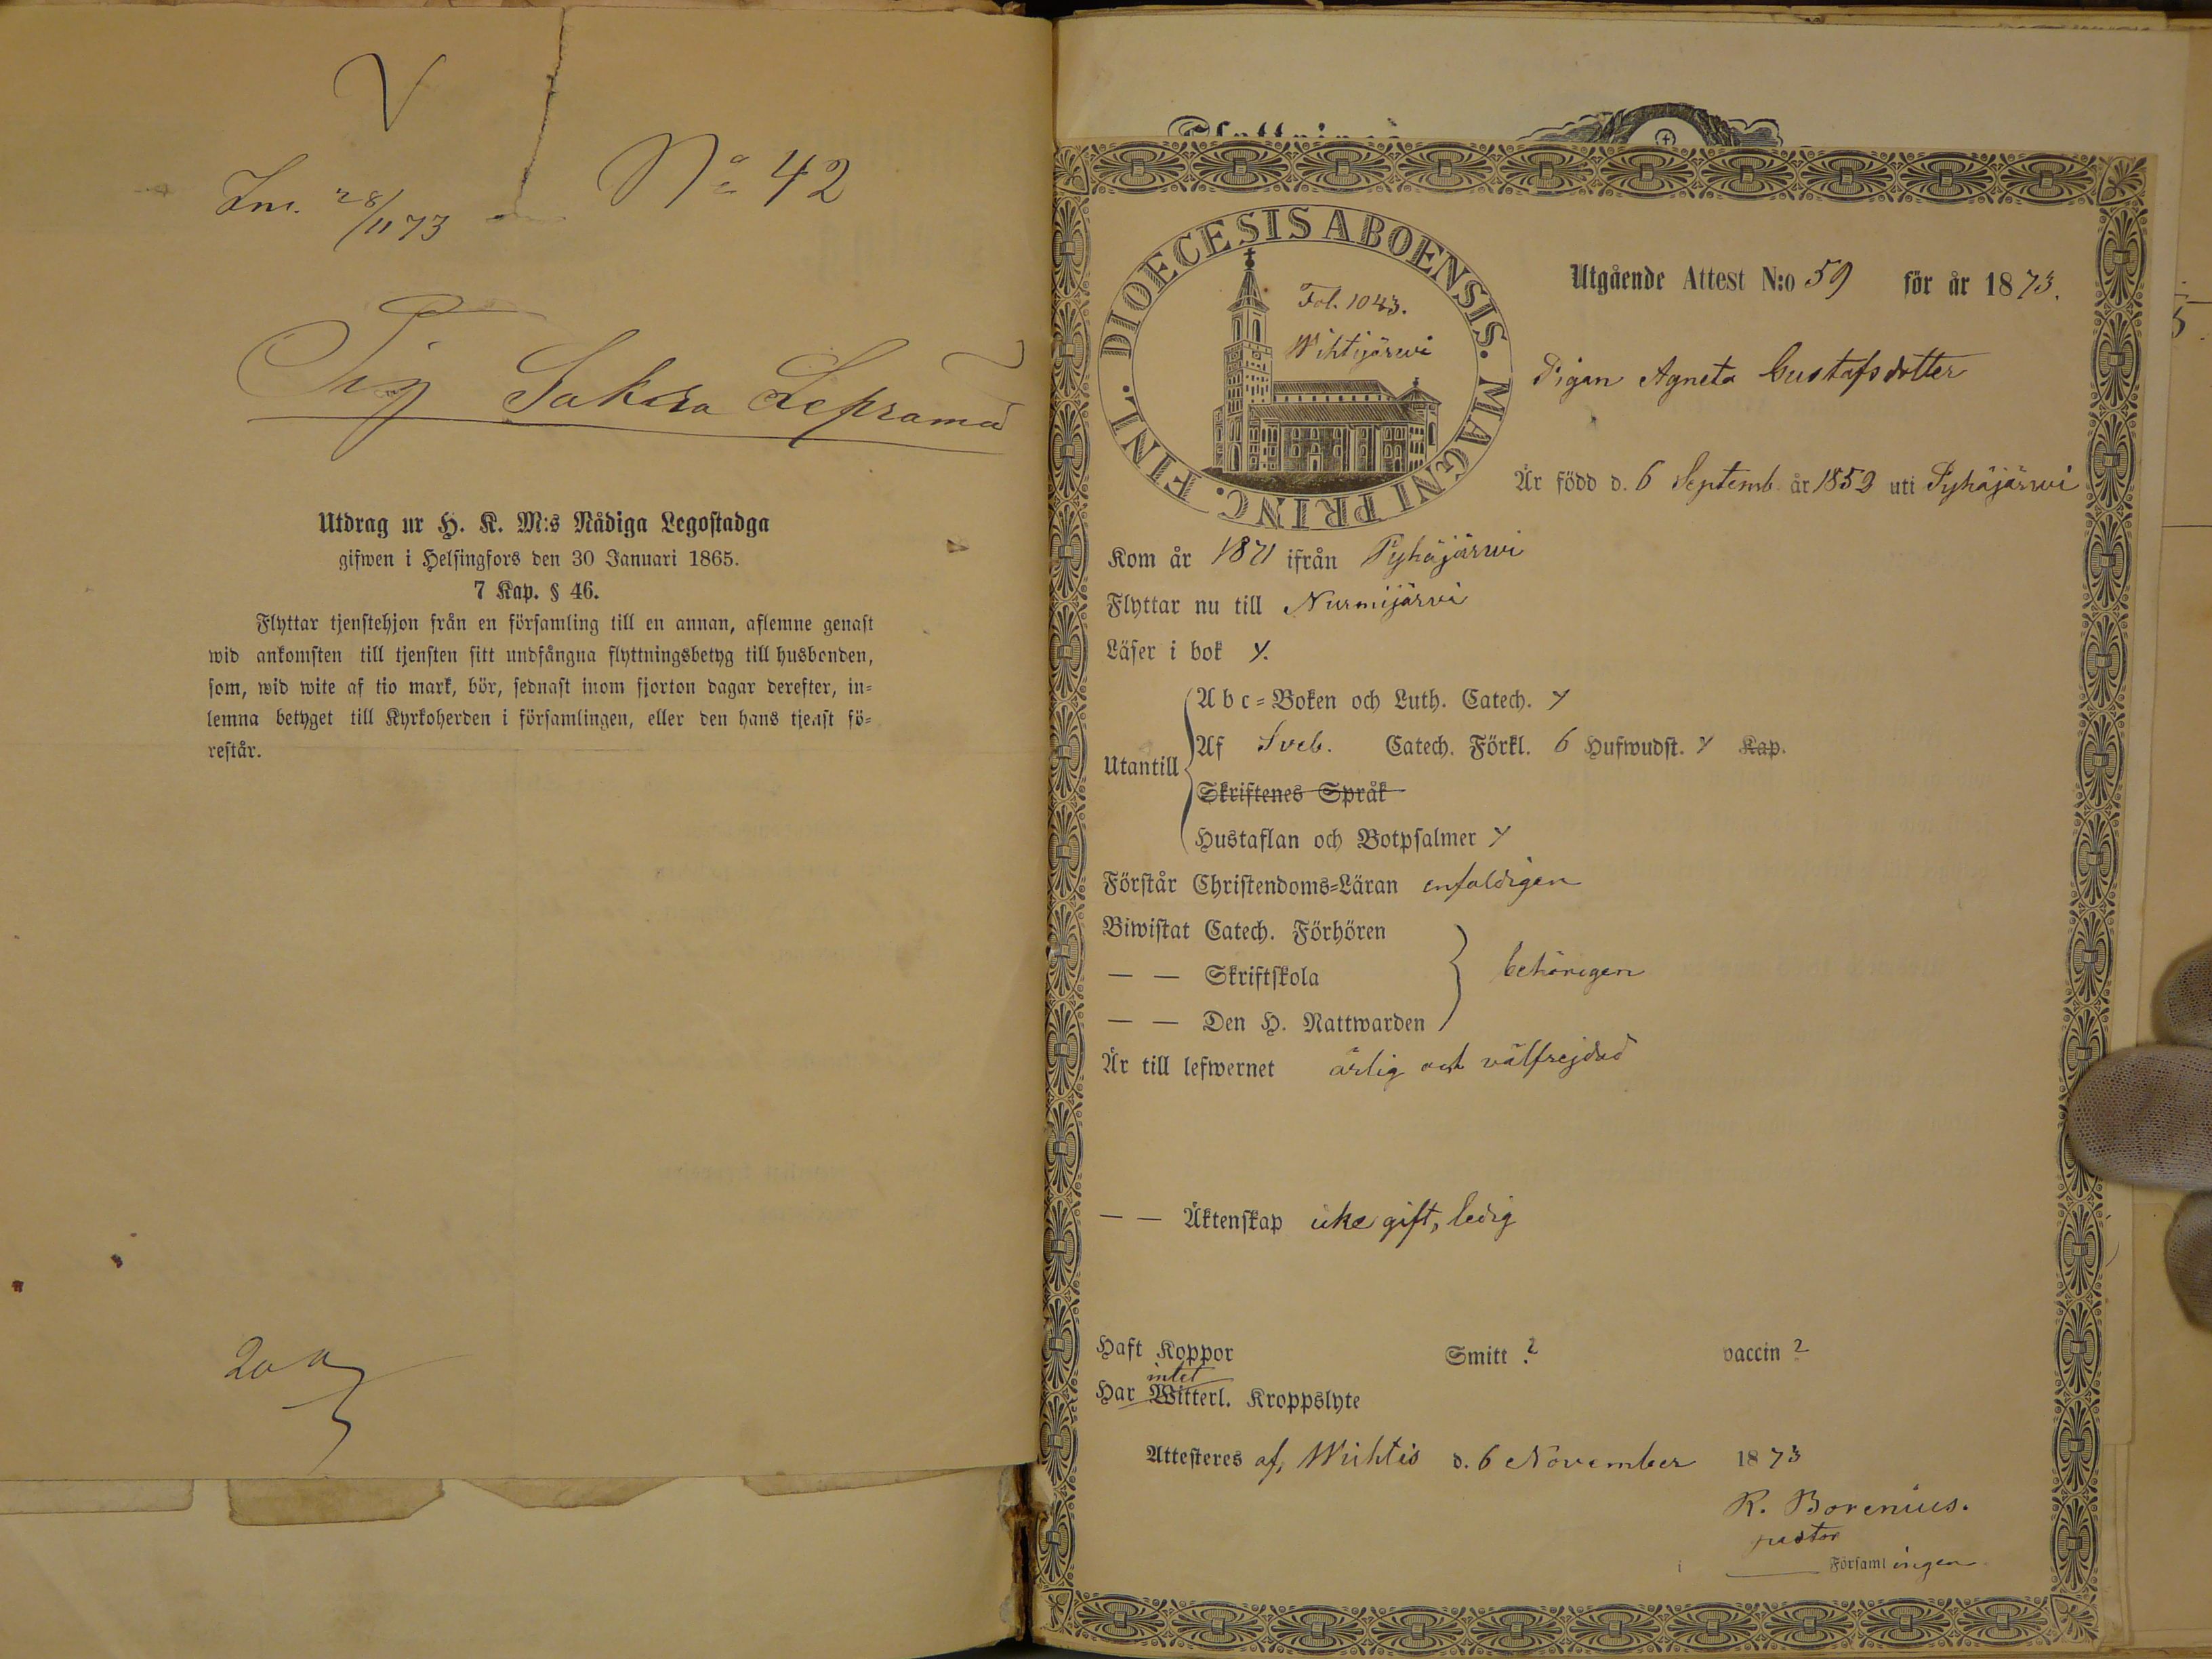 V
Inl. 28/11 73
No 42
Utdrag ur H. K. M:s Nådiga Legostadga
gifwen i Helsingfors den 30 Januari 1865.
7 Kap. § 46.
Flyttar tjenstehjon från en församling till en annan, aflemne genast
wid ankomsten till tjensten sitt undfångna flyttningsbetyg till husbonden,
som, wid wite af tio mark, bör, sednast inom fjorton dagar derefter, in-
lemna betyget till Kyrkoherden i församlingen, eller den hans tjenst fö-
restår.
DIOECESIS ABOENSIS. MAGNI PRINC. FINL.
Fol. 1043.
Wihtijärwi
Utgående Attest N:o 59 för år 1873.
Pigan Agneta Gustafsdotter
Är född d. 6 Septemb. år 1852 uti Pyhäjärwi
Kom år 1871 ifrån Pyhäjärwi
Flyttar nu till Nurmijärvi
Läser i bok y.
Utantill
A b c-Boken och Luth. Catech. y
Af Sveb. Catech. Förkl. 6 Hufwudst. y Kap.
Skriftenes Språk
Hustaflan och Botpsalmer y
Förstår Christendoms-Läran enfaldigen
Biwistat Catech. Förhören
— — Skriftskola behörigen
— — Den H. Nattwarden
Är till lefwernet ärlig och välfrejdad
— — Äktenskap icke gift, ledig
Haft Koppor Smitt ? vaccin ?
intet
Har Witterl. Kroppslyte
Attesteres af, Wichtis d. 6 November 1873
R. Borenius.
pastor
i Församlingen